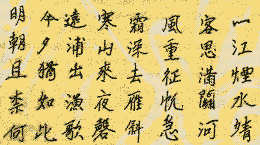 一江煙水晴
客思滿關河
風重征帆急
霜深士雁斜
寒山來夜磬
遠浦出漁歌
今夕猶如此
明朝且柰何